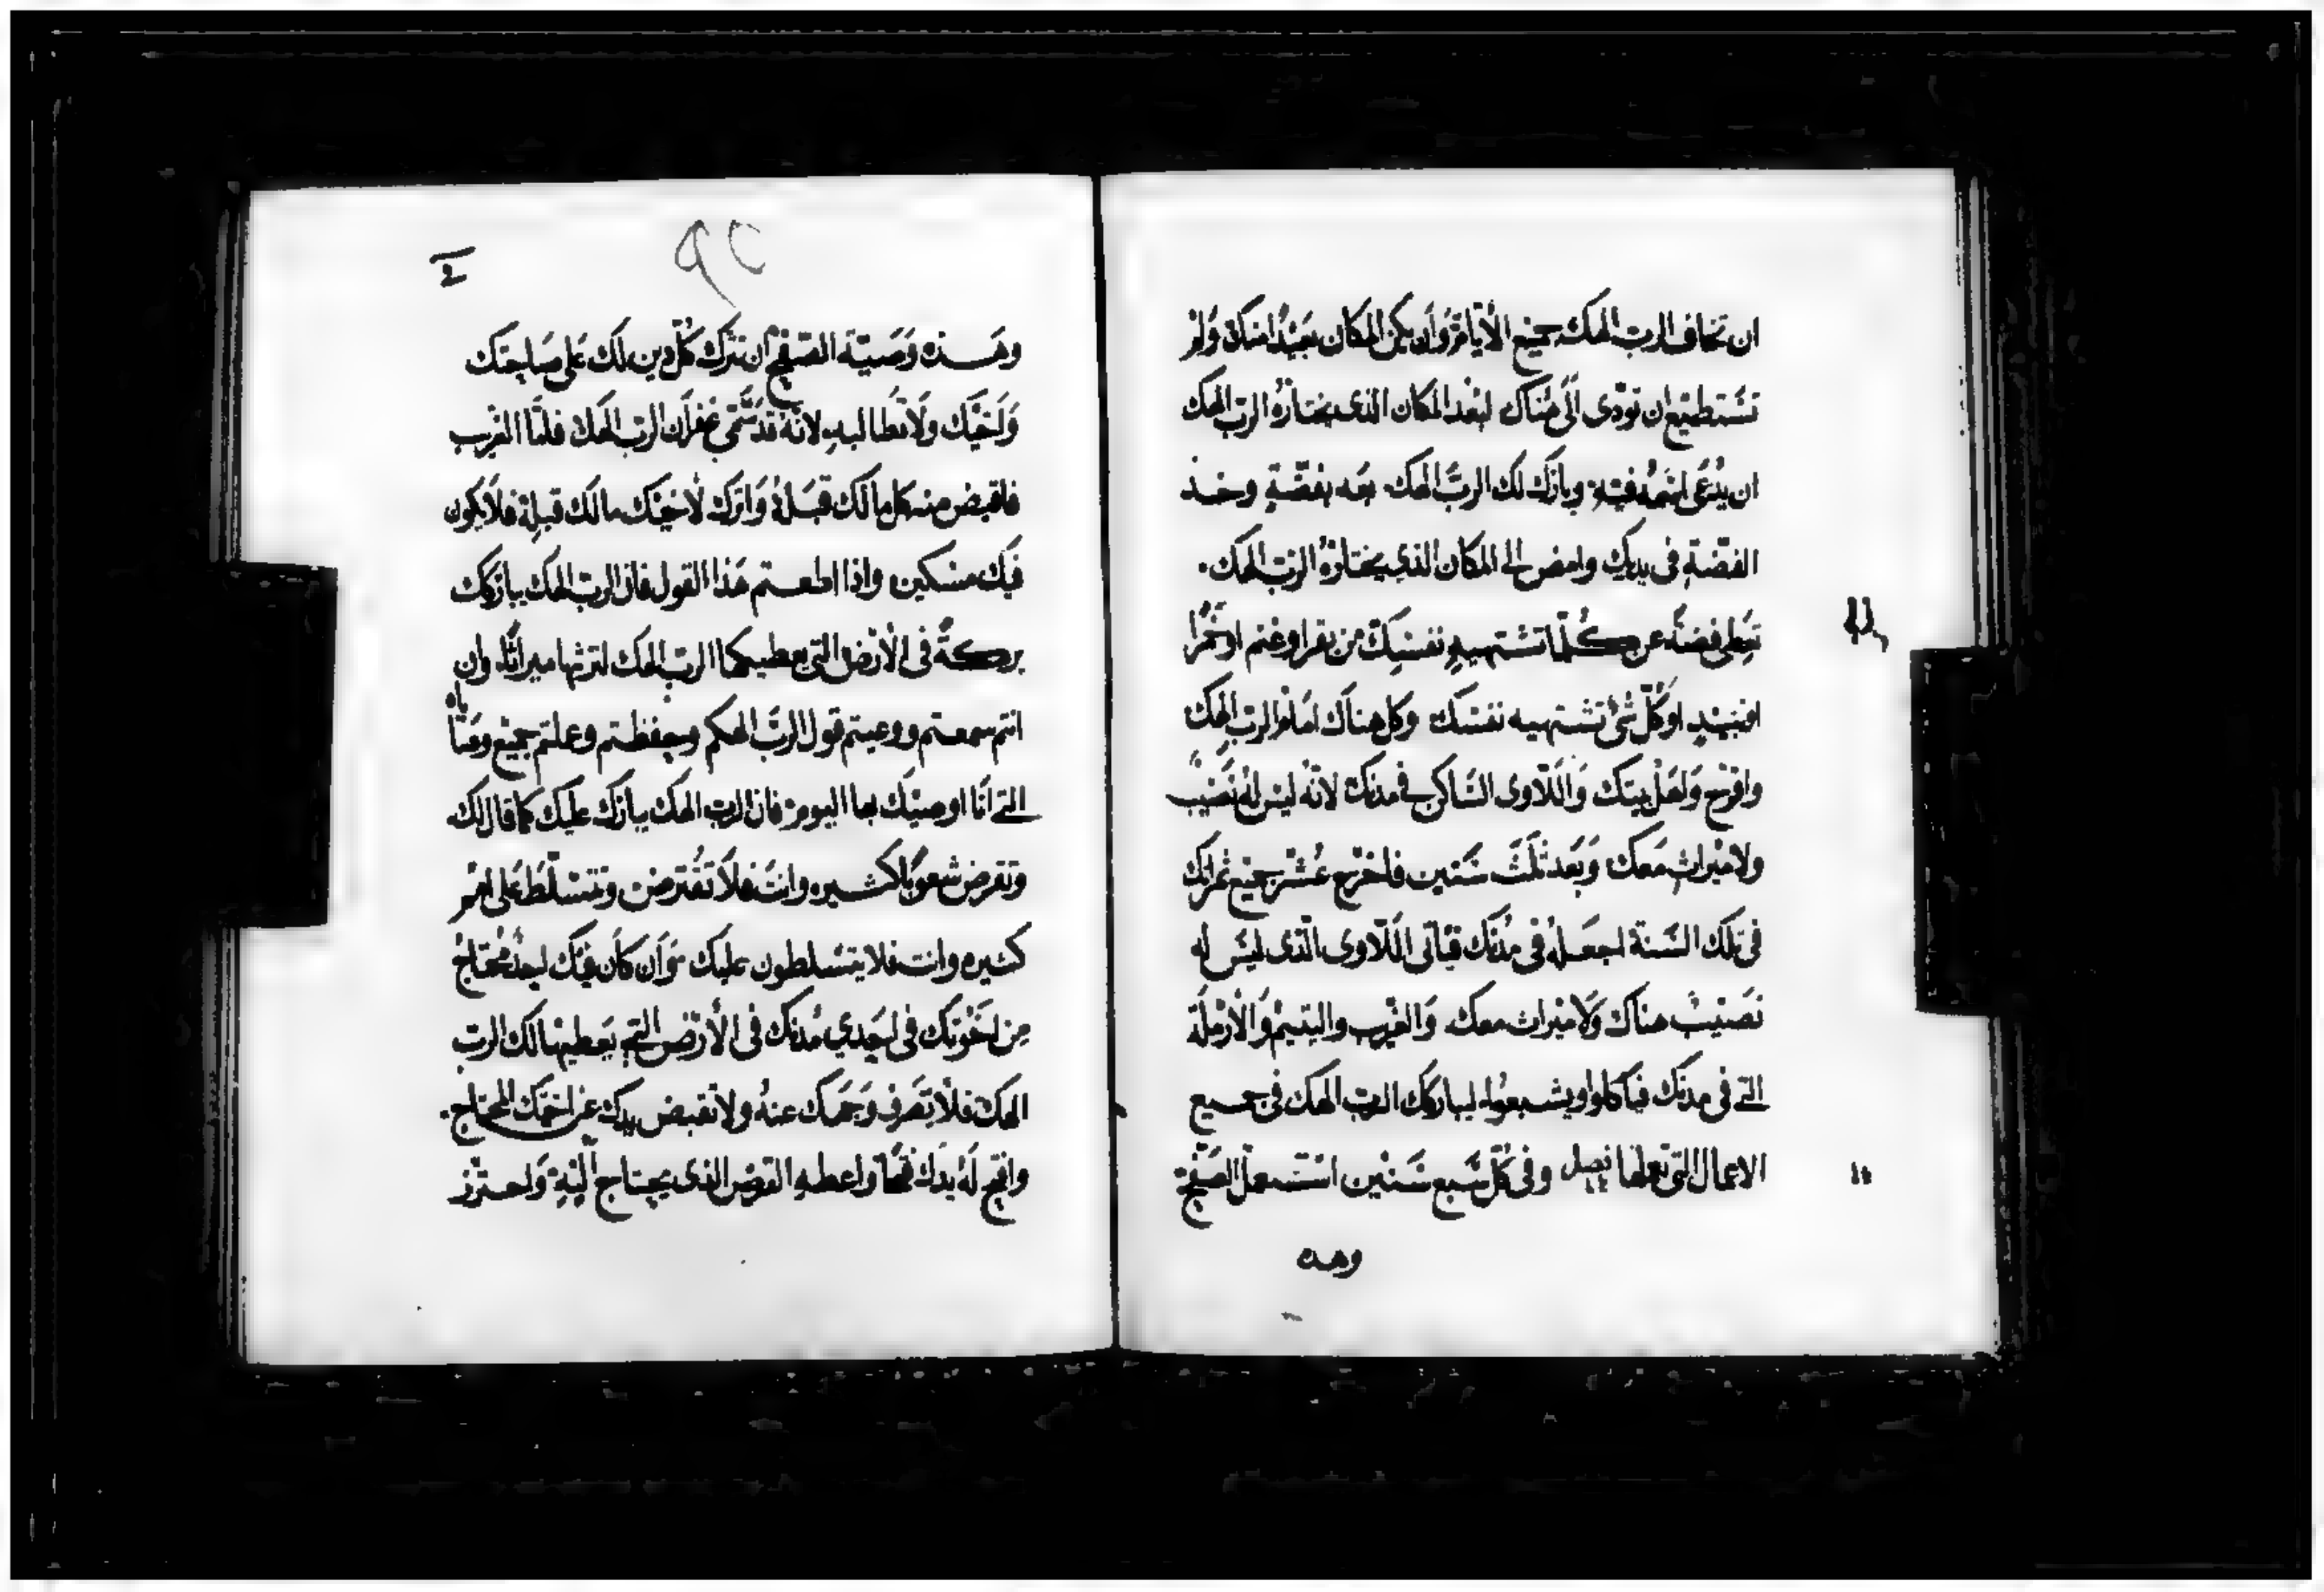 ان تخاف الرب الهك جميع الأيام وأن يكن المكان بعيدًا منك ولم
تستطيع ان تودى الى هناك لبعد المكان الذى يختاره الرب الهك
ان يدعى اسمه فيه وبارك لك الرب الهك بعه بفضة وخذ
الفضة فى يدك وامض الى المكان الذى يختاره الرب الهك
تعطى فضة عن كلما تشتهيه نفسك من بقر اوغنم اوخمرا
اونبيد اوكل شئ تشتهيه نفسك وكل هناك امام الرب الهك
وافرح واهل بيتك واللاوى الساكن فى مدنك لانه ليس له نصيب
ولا ميراث معك وبعد ثلث سنين فاخرج عشر جميع ثمراتك
فى تلك السنة اجعله فى مدنك فياتى اللاوى الذى ليس له
نصيب هناك ولا ميراث معك والغريب واليتيم والارملة
التى فى مدنك فياكلوا ويشبعوا ليباركك الرب الهك فى جميع
الاعمال التى تعملها فصل وفى كل سبع سنين استعمل الصفح
وهده
وهذه وصية الصفح ان تترك كل دين لك على صاحبك
واخيك ولا تطالبه لانه قد سمى غفران الرب الهك فلما الغريب
فاقبض منه كل مالك قبله واترك لأخيك مالك قبله فلا يكون
فيك مسكين واذا اطعتم هذا القول فان الرب الهك يباركك
بركة فى الأرض التى يعطيكما الرب الهك لترثها ميراثًا وان
انتم سمعتم ووعيتم قول الرب الهكم وحفظتم وعملتم جميع وصاياه
التى انا اوصيك بها اليوم فان الرب الهك يبارك عليك كما قال لك
وتقرض شعوبًا كثيره وانت فلا تقترض وتتسلط على امم
كثيره وانت فلا يتسلطون عليك وأن كان فيك احد محتاج
من اخوتك فى احدي مدنك فى الأرض التى يعطيها لك الرب
الهك فلا تصرف وجهك عنه ولا تقبض يدك عن اخيك المحتاج
وافتح له يدك فتحًا واعطه القرض الذى يحتاج اليه واحترز